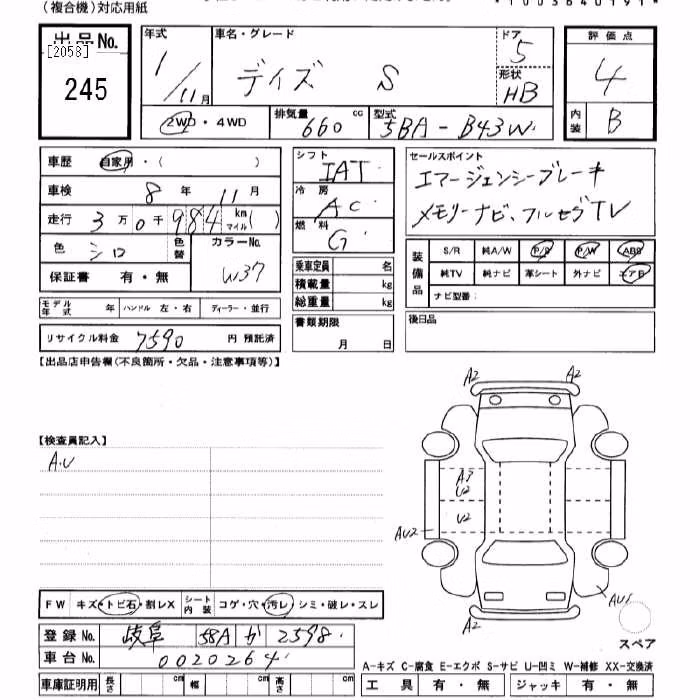 （複合機）対応用紙
*1003640191*
出品No.
[2058]
245
年式
1/11月
車名・グレード
デイズ S
ドア
5
形状
HB
評価点
4
内装
B
2WD・4WD
排気量
660 cc
型式
5BA-B43W
車歴 自家用・( )
車検 8年 11月
走行 3万0千984 km マイル ( )
色 シロ
色替
カラーNo.
W37
保証書 有・無
シフト
IAT
冷房
AC
燃料
G
乗車定員 名
積載量 kg
総重量 kg
セールスポイント
エマージェンシーブレーキ
メモリーナビ、フルセグTV
装備品
S/R 純A/W P/S P/W ABS
純TV 純ナビ 革シート 外ナビ エアB
ナビ型番：
モデル年式 年 ハンドル 左・右 ディーラー・並行
リサイクル料金 7590 円 預託済
書類期限
月 日
後日品
【出品店申告欄(不良箇所・欠品・注意事項等)】
A2 A2
【検査員記入】
A.U
A3
U2
U2
AU2
AU1
A2
スペア
FW キズ・トビ石・割レX シート内装 コゲ・穴・汚レ・シミ・破レ・スレ
登録No. 岐阜 58A か 2598
車台No. 0020264
A-キズ C-腐食 E-エクボ S-サビ U-凹ミ W-補修 XX-交換済
車庫証明用 長さ cm 幅 cm 高さ cm
工具 有・無 ジャッキ 有・無